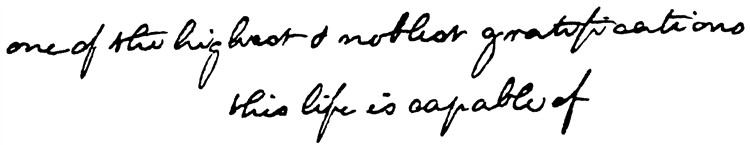 one of the highest & noblest gratifications
this life is capable of